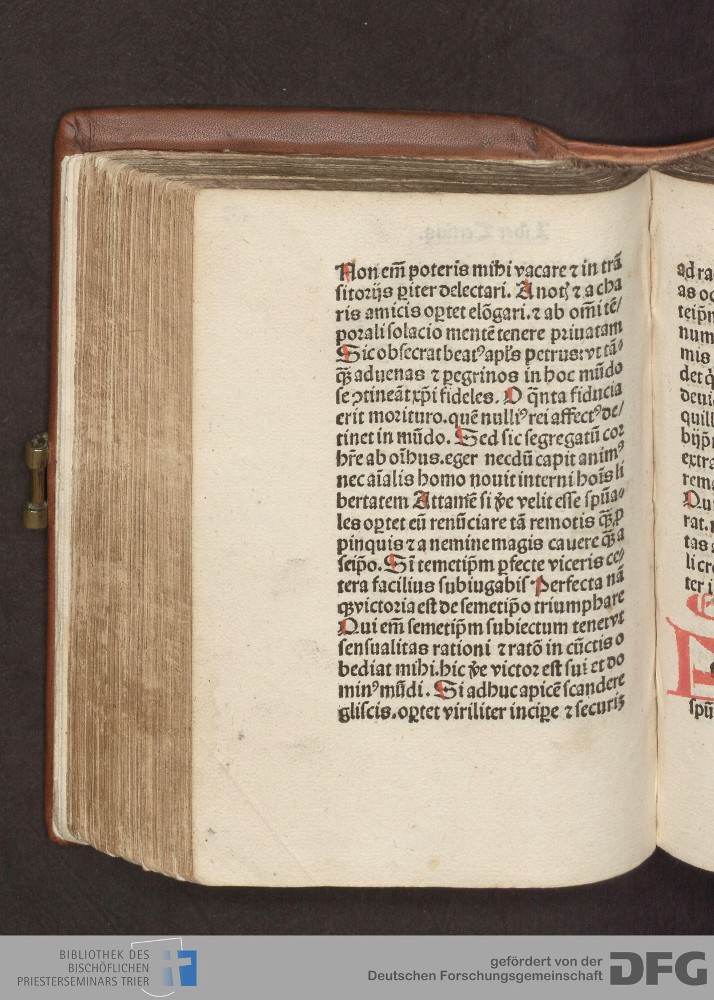 Non em̄ poteris mihi vacare ⁊ in trā
sitorijs ꝑiter delectari. A notꝭ ⁊ a cha
ris amicis oꝑtet elōgari. ⁊ ab om̄i tē/
porali solacio mentē tenere priuatam
Sic obsecrat beatꝰ apl's petrus: vt tā-
qꝫ aduenas ⁊ ꝑegrinos in hoc mūdo
se ↄtineāt xp̄i fideles. O q̄nta fiducia
erit morituro. quē nulliꝰ rei affectꝰ de/
tinet in mūdo. Sed sic segregatū cor
hr̄e ab oībus. eger necdū capit animꝰ
nec aīalis homo nouit interni hoīs li
bertatem Attamē si ꝟe velit esse spūa-
les oꝑtet eū renūciare tā remotis qꝫ ꝓ
pinquis ⁊ a nemine magis cauere qꝫ a
seip̄o. Si temetip̄m ꝑfecte viceris ce-
tera facilius subiugabis Perfecta nā
qꝫ victoria est de semetip̄o triumphare
Qui em̄ semetip̄m subiectum tenet vt
sensualitas rationi ⁊ ratō in cūctis o
bediat mihi. hic ꝟe victor est sui et do
minꝰ mūdi. Si adhuc apicē scandere
gliscis. oꝑtet viriliter incipe ⁊ securiꝫ
ad ra
as oc
teip̄m
num
mis
det q̄
deui
quill
extra
rema
Qui
rat.
tas
li cre
ter i
spū
BIBLIOTHEK DES
BISCHÖFLICHEN
PRIESTERSEMINARS TRIER
gefördert von der
Deutschen Forschungsgemeinschaft
DFG